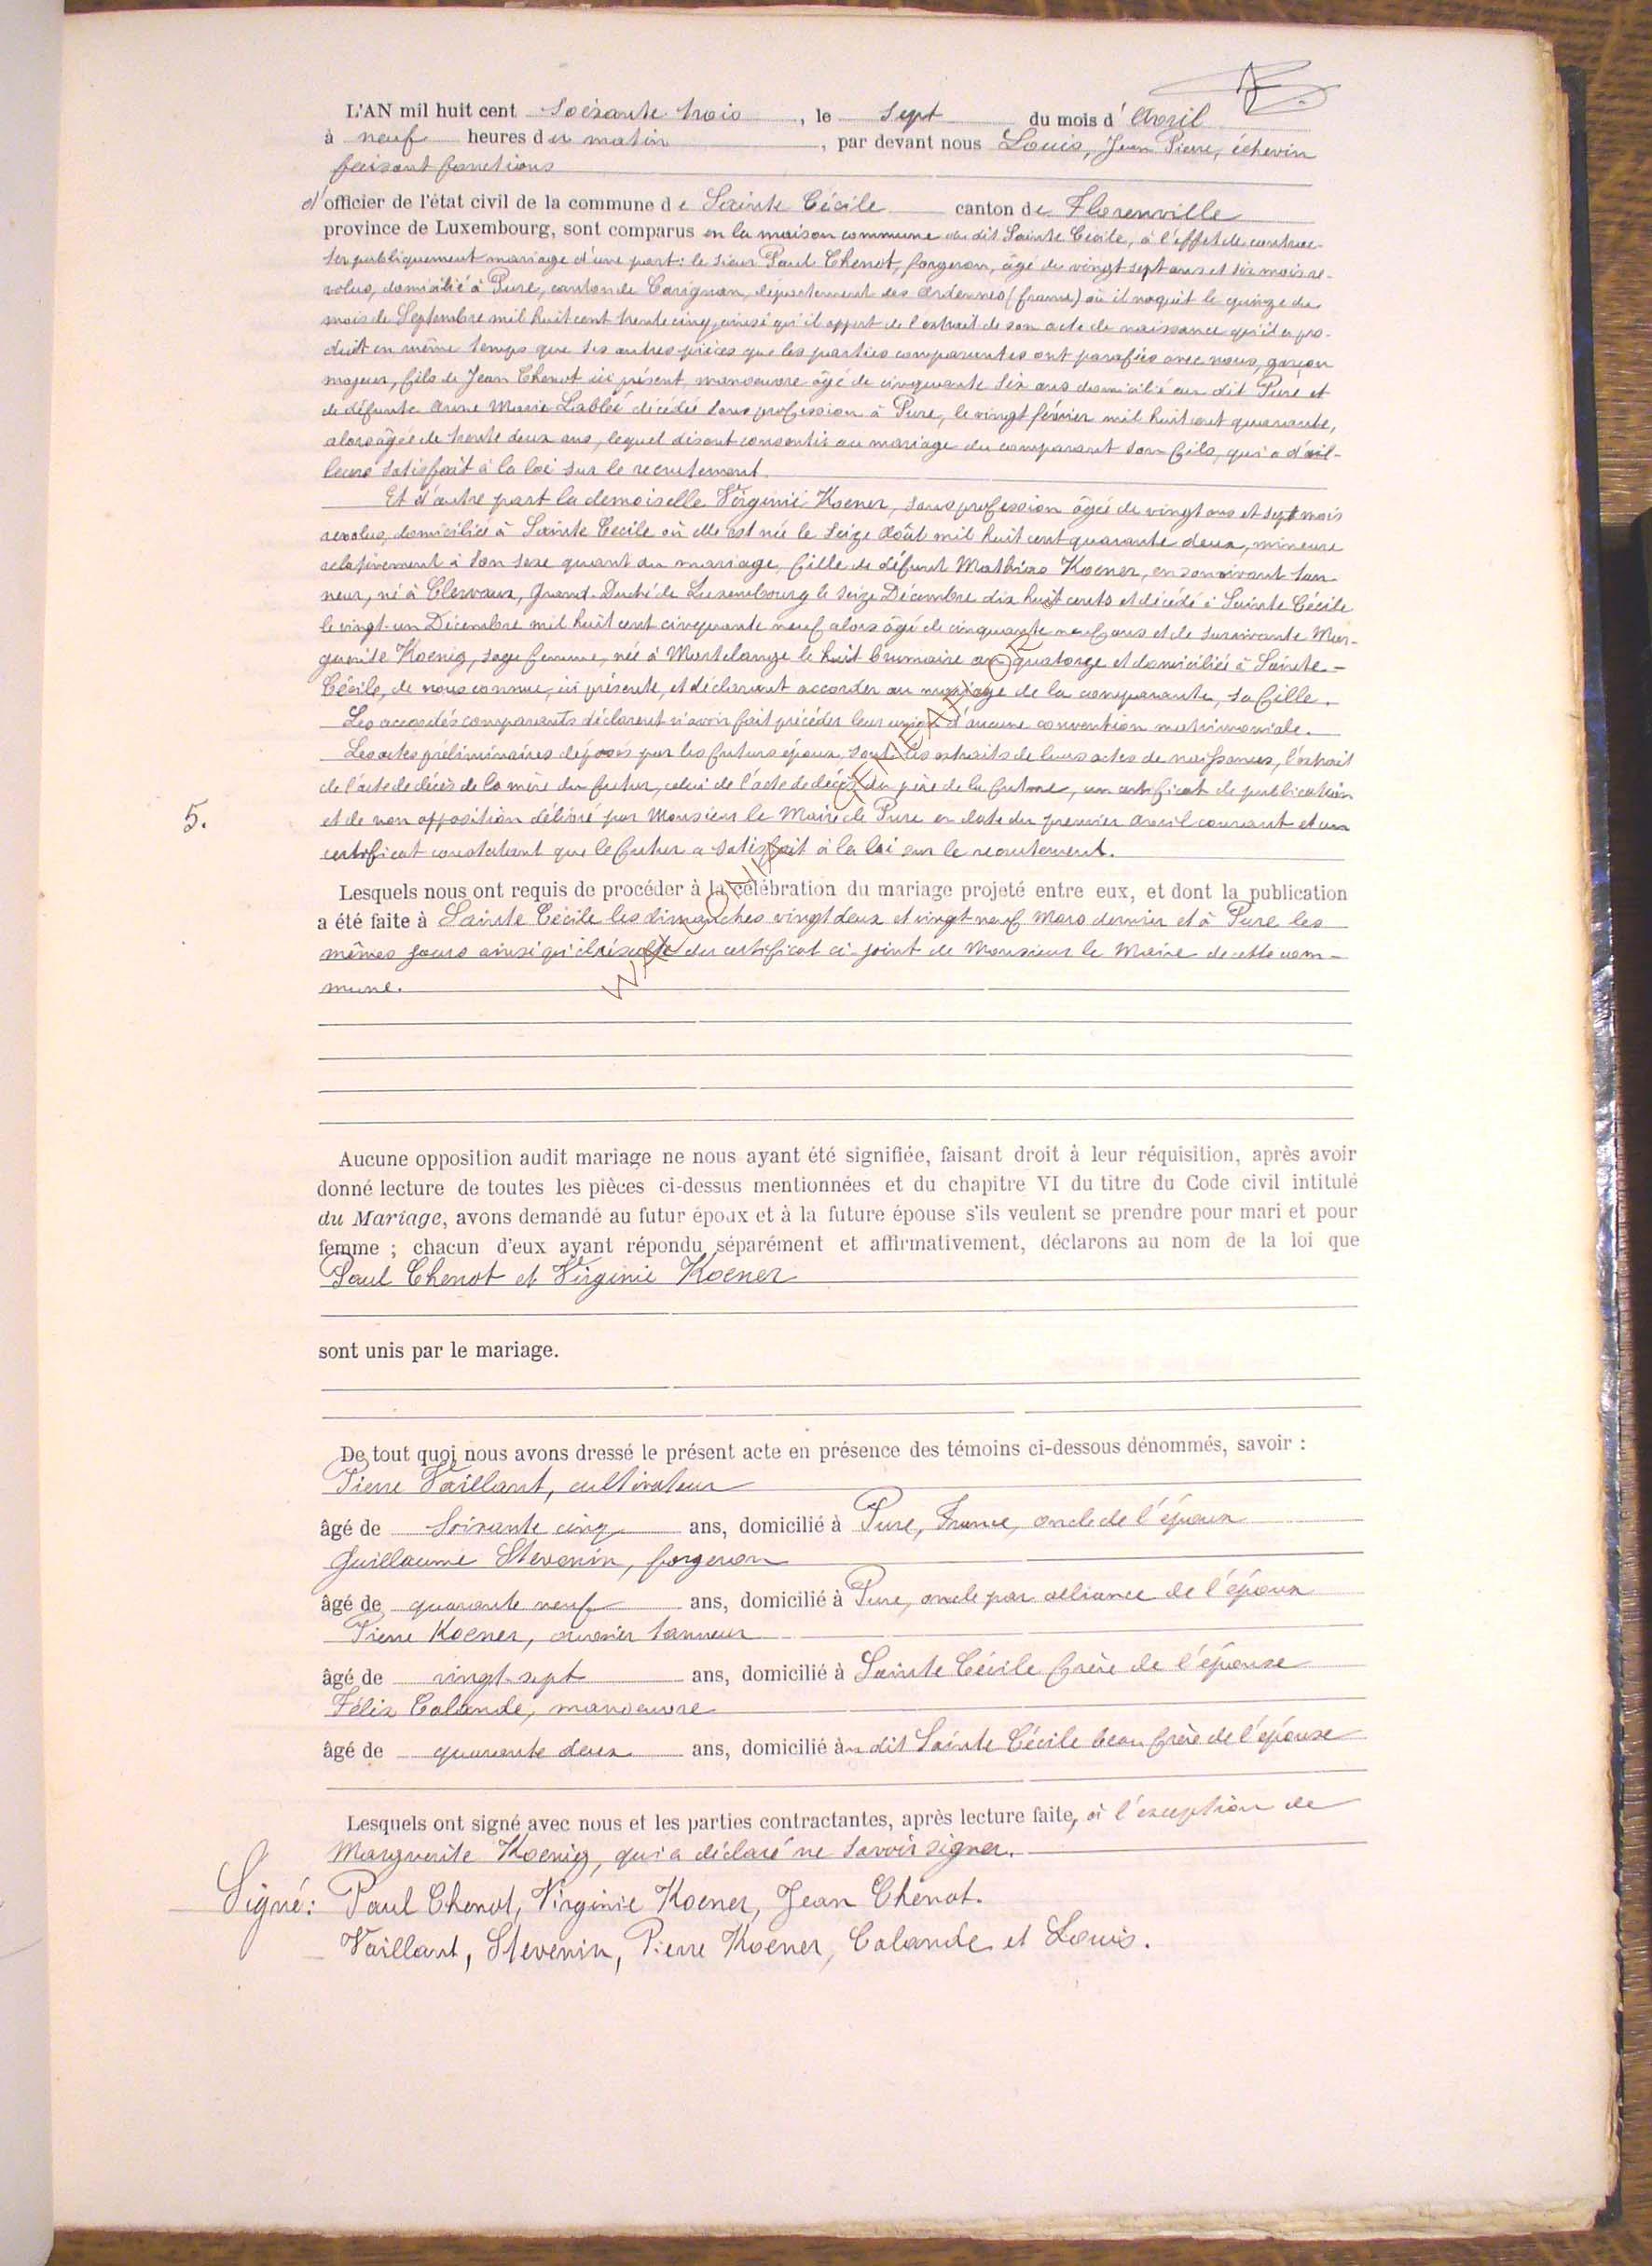 L'AN mil huit cent Soixante trois, le Sept du mois d'Avril
à neuf heures du matin, par devant nous Louis, Jean Pierre, échevin
faisant fonctions
d'officier de l'état civil de la commune de Sainte Cécile canton de Florenville
province de Luxembourg, sont comparus en la maison commune du dit Sainte Cécile, à l'effet de contrac-
ter publiquement mariage d'une part: le sieur Paul Chenot, forgeron, âgé de vingt sept ans et six mois ré-
volus, domicilié à Pure, canton de Carignan, département des Ardennes (france) où il naquit le quinze du
mois de Septembre mil huit cent trente cinq, ainsi qu'il appert de l'extrait de son acte de naissance qu'il a pro-
duit en même temps que les autres pièces que les parties comparantes ont parafées avec nous, garçon
majeur, fils de Jean Chenot ici présent, manoeuvre âgé de cinquante six ans domicilié au dit Pure et
de défunte Anne Marie Lablée décédée sans profession à Pure, le vingt février mil huit cent quarante,
alors âgée de trente deux ans, lequel disant consentir au mariage du comparant son fils, qui a d'ail-
leurs satisfait à la loi sur le recrutement.
Et d'autre part la demoiselle Virginie Koener, sans profession âgée de vingt ans et sept mois
révolus, domiciliée à Sainte Cécile où elle est née le seize Août mil huit cent quarante deux, mineure
relativement à son sexe quant au mariage, fille de défunt Mathias Koener, en son vivant tan-
neur, né à Clervaux, Grand-Duché de Luxembourg le seize Décembre dix huit cents et décédé à Sainte Cécile
le vingt-un Décembre mil huit cent cinquante neuf alors âgé de cinquante neuf ans et de survivante Mar-
guerite Koenig, sage femme, née à Martelange le huit brumaire an quatorze et domiciliée à Sainte-
Cécile, de nous connue, ici présente, et déclarant accorder au mariage de la comparante, sa fille.
Les accordés comparants déclarent n'avoir fait précéder leur union d'aucune convention matrimoniale.
Les actes préliminaires déposés par les futurs époux, sont: les extraits de leurs actes de naissances, l'extrait
de l'acte de décès de la mère du futur, celui de l'acte de décès du père de la future, un certificat de publication
5.
et de non opposition délivré par Monsieur le Maire de Pure en date du premier avril courant et un
certificat constatant que le futur a satisfait à la loi sur le recrutement.
Lesquels nous ont requis de procéder à la célébration du mariage projeté entre eux, et dont la publication
a été faite à Sainte Cécile les dimanches vingt deux et vingt neuf Mars dernier et à Pure les
mêmes jours ainsi qu'il résulte du certificat ci-joint de Monsieur le Maire de cette com-
mune.
WALLONIA GENEALOGY
Aucune opposition audit mariage ne nous ayant été signifiée, faisant droit à leur réquisition, après avoir
donné lecture de toutes les pièces ci-dessus mentionnées et du chapitre VI du titre du Code civil intitulé
du Mariage, avons demandé au futur époux et à la future épouse s'ils veulent se prendre pour mari et pour
femme ; chacun d'eux ayant répondu séparément et affirmativement, déclarons au nom de la loi que
Paul Chenot et Virginie Koener
sont unis par le mariage.
De tout quoi nous avons dressé le présent acte en présence des témoins ci-dessous dénommés, savoir :
Pierre Vaillant, cultivateur
âgé de Soixante cinq ans, domicilié à Pure, France, oncle de l'époux
Guillaume Stevenin, forgeron
âgé de quarante neuf ans, domicilié à Pure, oncle par alliance de l'époux
Pierre Koener, ouvrier tanneur
âgé de vingt-sept ans, domicilié à Sainte Cécile frère de l'épouse
Félix Calande, manoeuvre
âgé de quarante deux ans, domicilié au dit Sainte Cécile beau frère de l'épouse
Lesquels ont signé avec nous et les parties contractantes, après lecture faite, à l'exception de
Marguerite Koenig, qui a déclaré ne savoir signer.
Signé: Paul Chenot, Virginie Koener, Jean Chenot.
Vaillant, Stevenin, Pierre Koener, Calande et Louis.